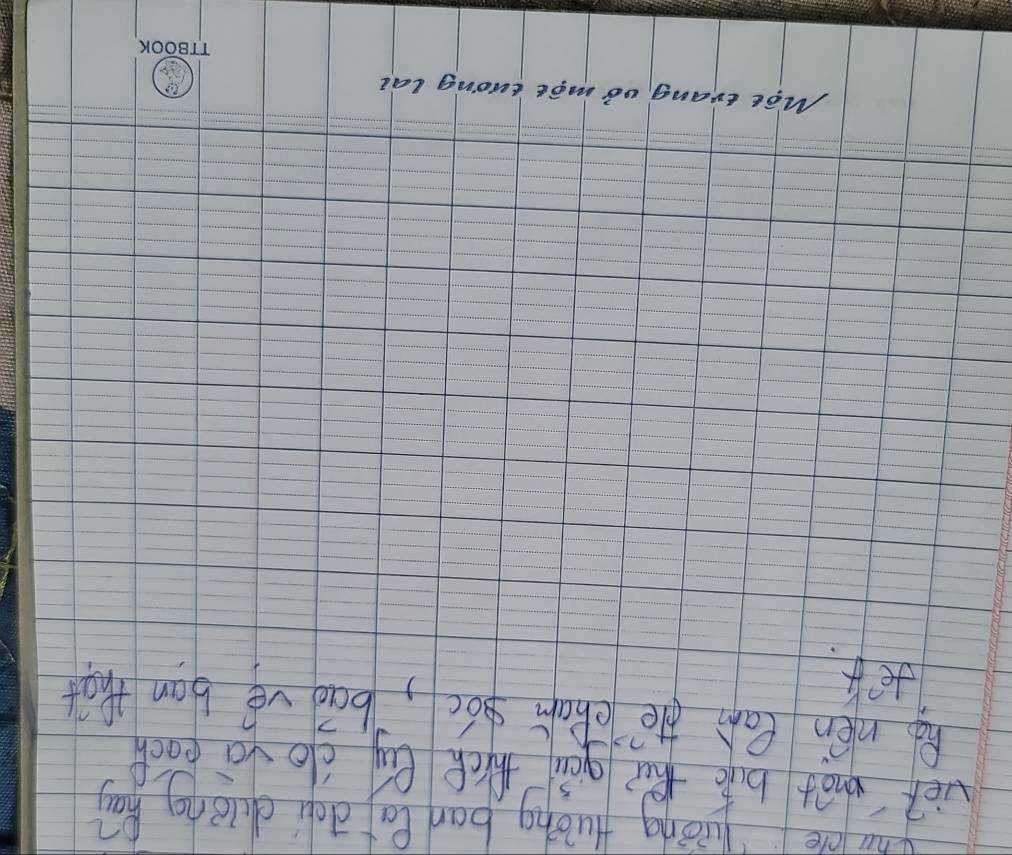 Chủ đề : Tưởng tượng bạn là đại dương, hãy
viết một bức thư gửi thích lý do và cách
họ nên làm để chăm sóc , bảo vệ bạn thật
tốt .
Một trang vở một tương lai
TTBOOK